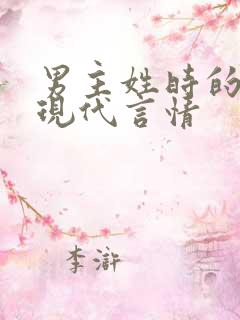 男主姓時的
現代言情
李滸